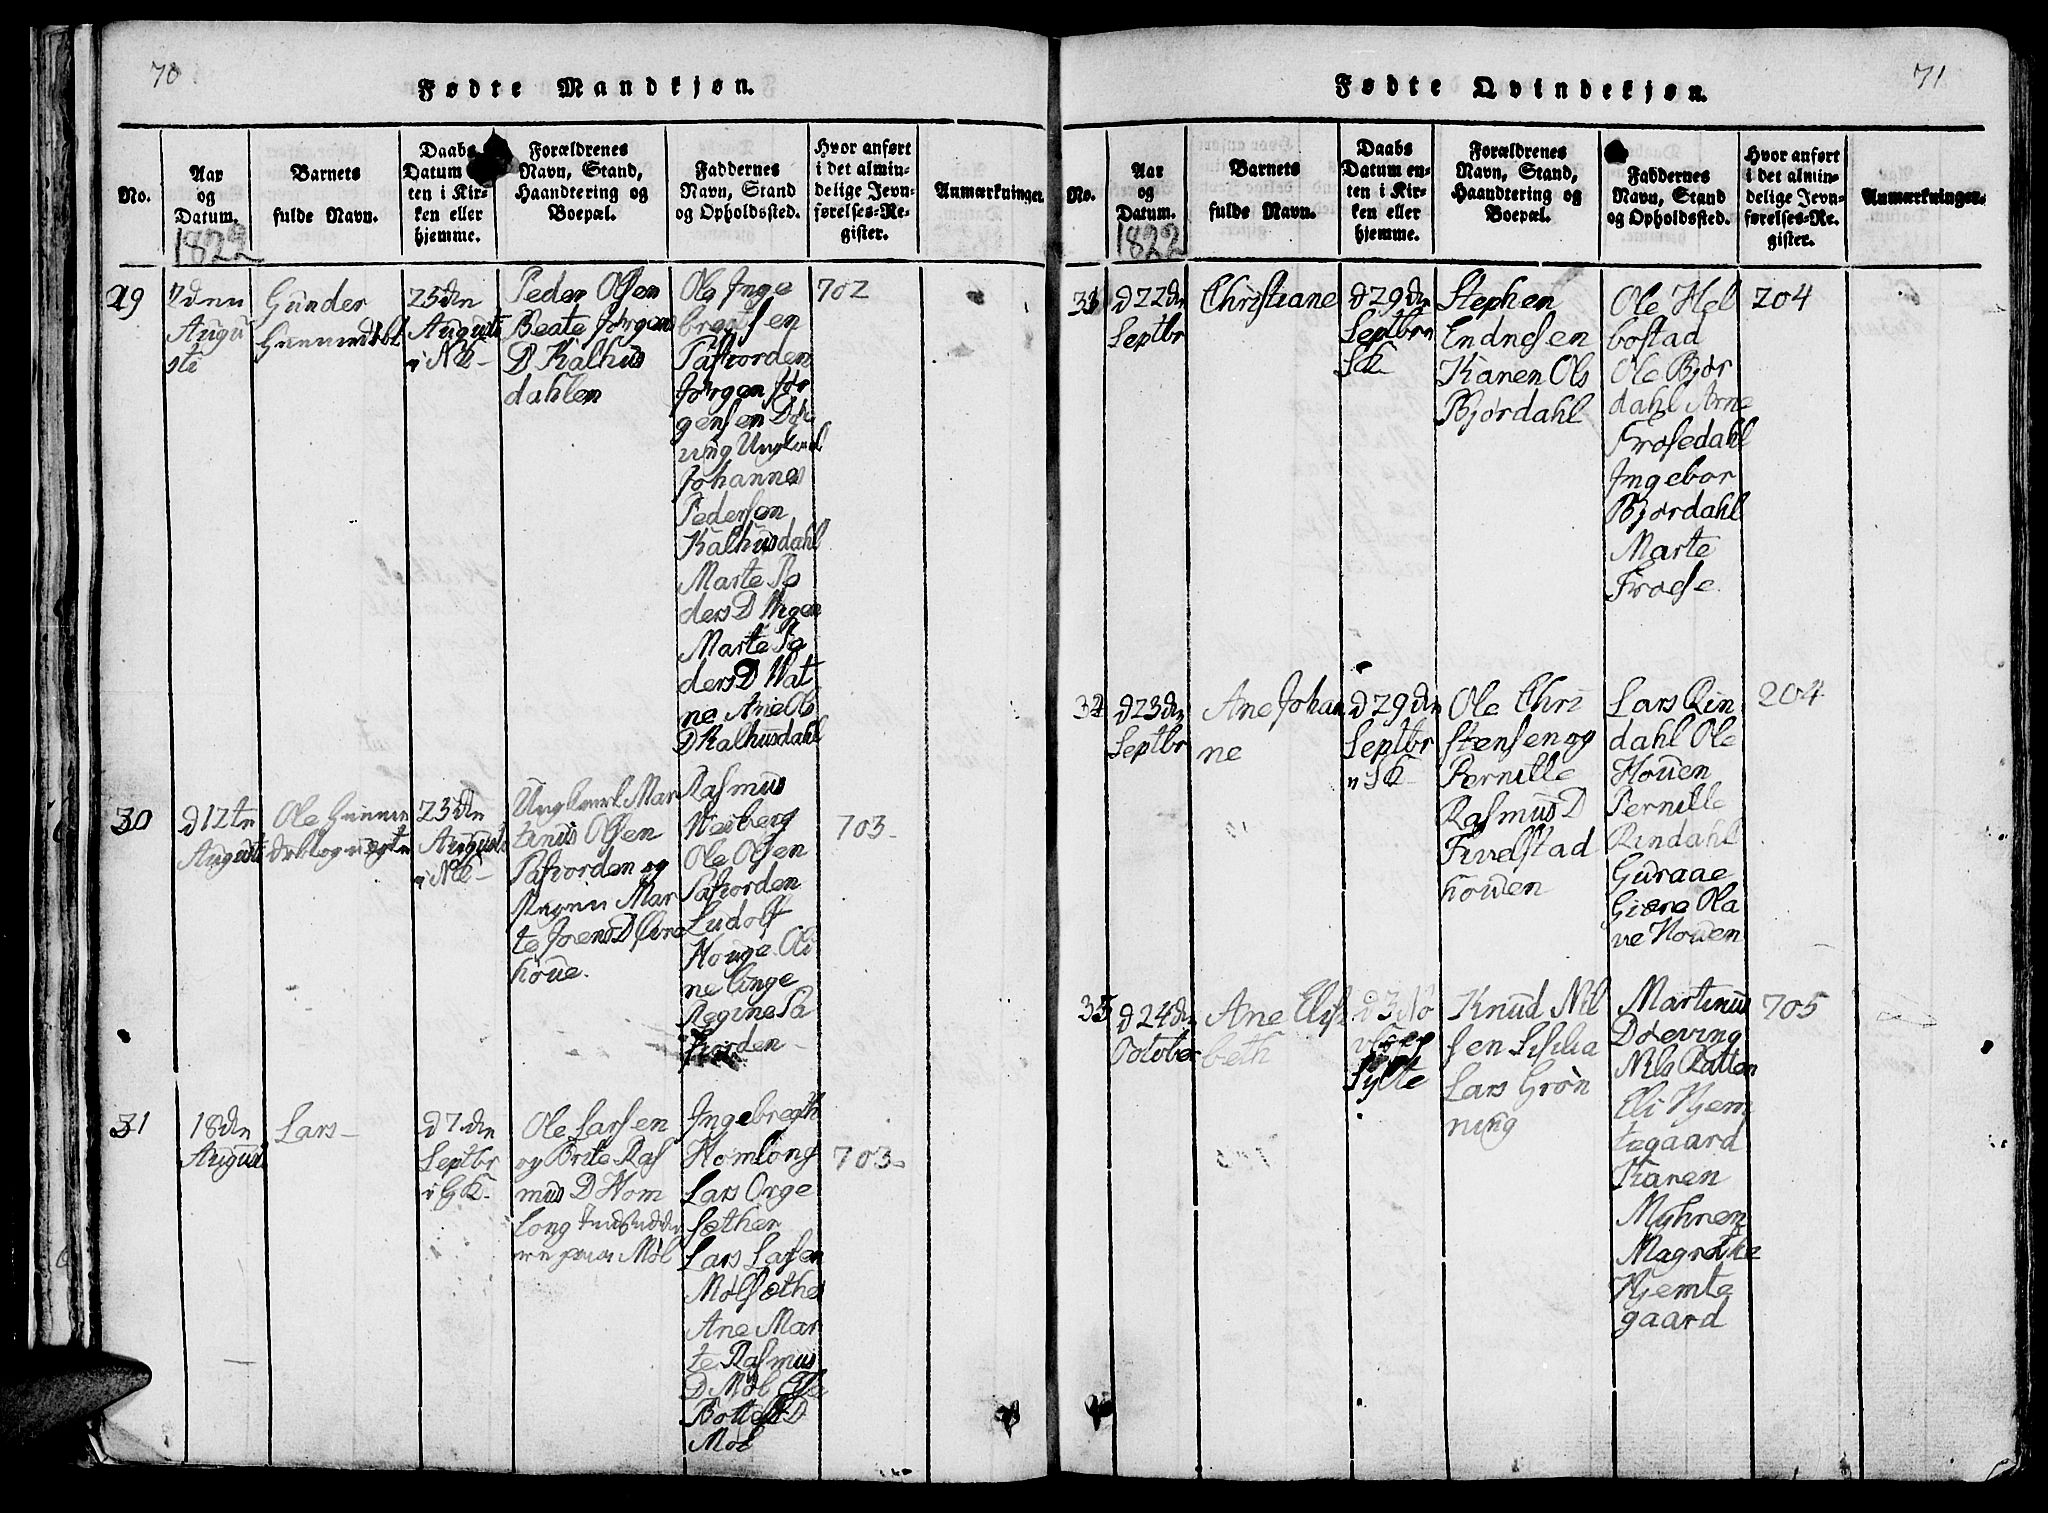 70
Fødte Mandkjøn.
No.
Aar
og
Datum.
1822
Barnets
fulde Navn.
Daabs
Datum
ten i Kir-
ken eller
hjemme.
Forældrenes
Navn, Stand,
Haandtering og
Boepæl.
Faddernes
Navn, Stand
og Opholdsted.
Hvor anført
i det almin-
delige Jevn-
førelses-Re-
gister.
Anmærkninger.
29
7den
Augu
sti
Gunder
25den
Augusti
i NK-
Peder Olsen
Beate Jørgens
D Kalhus
dahlen
Ole Inge
brigtsen
Jørgen Jør
gensen Døe
ving Ungkarl
Johannes
Pedersen
Kalhusdahl
Marte Pe
ders D
Marte Pe
ders D Wat
ne Ane Ols
D Kalhusdahl
702
30
d12te
Augusti
Ole
23den
Augusti
i NK-
Ungkarl Mar
tinus Olsen
og
Pigen Mar
te Joens D Øvre
houe.
Rasmus
Nesberg
Ole Olsen
Ludolf
Houge Oli
ne Linge
Regine Sa
703-
31
18den
Augusti
Lars-
d7den
Septbr
i GK-
Ole Larsen
og Brite Ras
mus D Hom
long
Møl
Ingebregth
Homlong
Lars Orge
sæther
Lars Larsen
Mølsæther
Ane Mar
te Rasmus
D Møl
Møl
703-
71
Fødte Qvindekjøn.
No.
Aar
og
Datum.
1822
Barnets
fulde Navn.
Daabs
Datum en-
ten i Kir-
ken eller
hjemme.
Forældrenes
Navn, Stand,
Haandtering og
Boepæl.
Faddernes
Navn, Stand
og Opholdsted.
Hvor anført
i det almin-
delige Jevn-
førelses-Re-
gister.
Anmærkninger.
33
d22den
Septbr
Christiane
d29den
Septbr
SK-
Stephen
Endresen
Karen Ols
Bjørdahl
Ole Hel
bostad
Ole Bjør
dahl Arne
Frosedahl
Ingebor
Bjørdahl
Marte
Frose.
204
34
d23den
Septbr
Ane Johan
ne
d29den
Septbr
i SK-
Ole Chri
stensen og
Pernille
Rasmus D
Fivelstad
houen
Lars Rin
dahl Ole
Houen
Pernille
Rindahl
Guraae
Giære Ola
ve Houen
204
35
d24den
October
Ane Elisa
beth
d3 No
vbr
Sylte
Knud Nil
sen Sisilia
Lars Grøn
ning
Martinus
Døeving
Nils Ratton
Eli Hjem
tegaard
Karen
Myhren
Magrethe
Hjemte
gaard
705